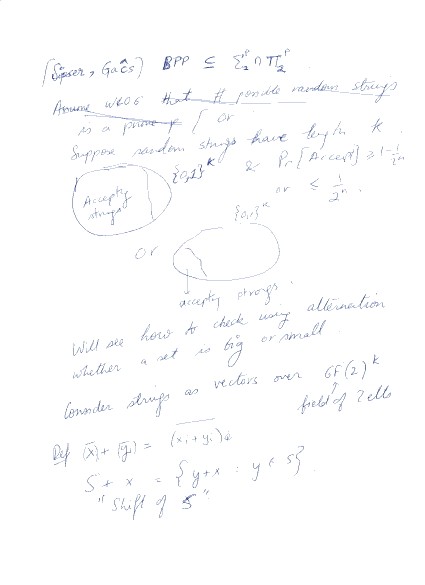 [Sipser, Gacs) BPP ⊆ Σ₂ᵖ ∩ Π₂ᵖ
Assume WLOG that # possible random strings
is a prime [ or
Suppose random strings have length k.
{0,1}ᵏ & Pr[Accept] ≥ 1 - 1/2ⁿ
or ≤ 1/2ⁿ.
Accepty
strings
{0,1}ᵏ
Or
accepty strings.
Will see how to check using alternation
whether a set is big or small.
Consider strings as vectors over GF(2)ᵏ
field of 2 elts
Def (x̄) + (ȳ) = (xᵢ + yᵢ)
S + x = {y + x : y ∈ S}.
"Shift of S".